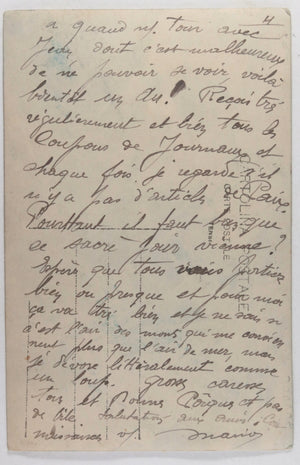 4
a quand n/. tour avec
Jean dont c'est malheureux
de ne pouvoir se voir, voilà
bientôt un an. Reçois très
régulièrement et bien tous les
Coupons de Journaux et
chaque fois je regarde s'il
n'y a pas d'articles Paix.
Pourtant il faut bien que
ce sacré jour vienne!
Espère que tous vous portiez
bien ou presque et pour moi
ça va très bien et je ne sais si
c'est l'air des monts qui me convien
nent plus que l'air de mer, mais
je dévore littéralement comme
un loup. grosses caresses
tous et Bonnes Pâques et pas
de bile. Salutations aux amis
naissances v/.
CARTOLINA POSTALE
CARTE POSTALE